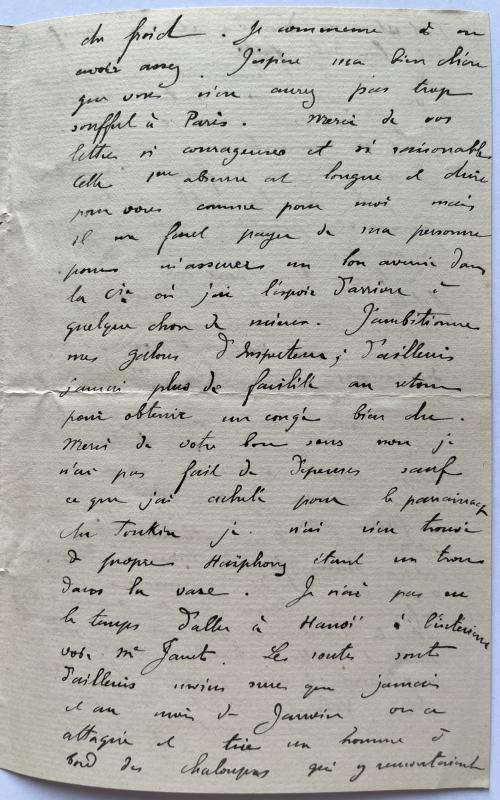 du froid. Je commence à en
avoir assez. J'espère ma bien chère
que vous n'en aurez pas trop
souffert à Paris. Merci de vos
lettres si courageuses et si raisonnables
Cette 1ère absence est longue et dure
pour vous comme pour moi mais
il me faut payer de ma personne
pour m'assurer un bon avenir dans
la Cie où j'ai l'espoir d'arriver à
quelque chose de mieux. J'ambitionne
mes galons d'Inspecteur; d'ailleurs
j'aurai plus de facilité au retour
pour obtenir un congé bien du.
Merci de votre bon sens non je
n'ai pas fait de dépenses sauf
ce que j'ai acheté pour le parrainage
du Tonkin je n'ai rien trouvé
de propre Haïphong étant un trou
dans la vase. Je n'ai pas eu
le temps d'aller à Hanoï à l'intérieur
voir Me Janet. Les routes sont
d'ailleurs moins sures que jamais
et au mois de Janvier on a
attaqué et tué un homme à
bord des chaloupes qui y remontaient